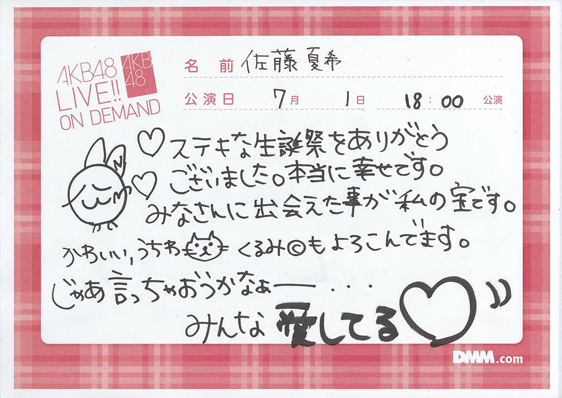 AKB48
LIVE!!
ON DEMAND
AKB
48
名前 佐藤夏希
公演日 7月 1日 18:00 公演
ステキな生誕祭をありがとう
ございました。本当に幸せです。
みなさんに出会えた事が私の宝です。
かわいい、うちわ くるみ©もよろこんでます。
じゃあ言っちゃおうかなぁー・・・
みんな愛してる
DMM.com